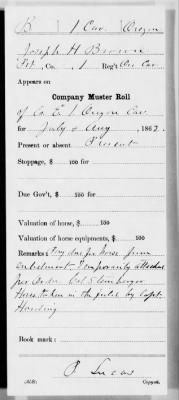 B | 1 Cav. | Oregon
Joseph H Brown
Pvt, Co. , 1 Reg't Or. Cav.
Appears on
Company Muster Roll
of Co. E 1 Oregon Cav
for July & Aug , 1862.
Present or absent Present
Stoppage, $ 100 for
Due Gov't, $ 100 for
Valuation of horse, $ 100
Valuation of horse equipments, $ 100
Remarks: Pay due for horse from
enlistment. Temporarily attached
per order Col
Horse taken in the field by Capt
Harding
Book mark:
P. Lucas
(858) Copyist.